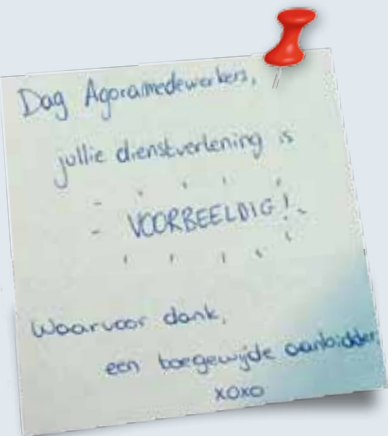 Dag Agoramedewerkers,
jullie dienstverlening is
- VOORBEELDIG!
Waarvoor dank,
een toegewijde aanbidder
xoxo